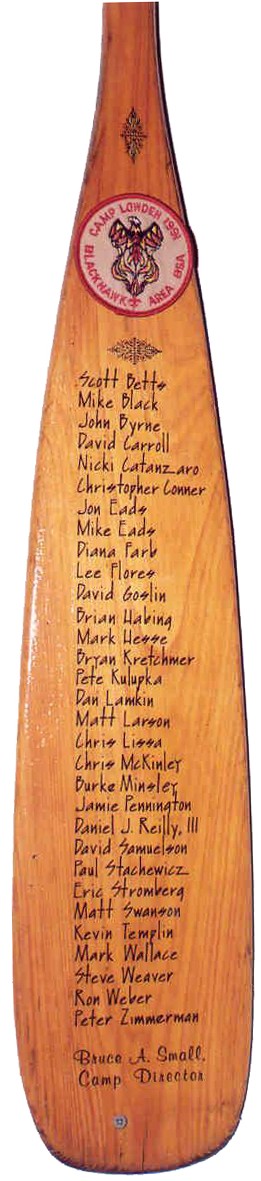 CAMP LOWDEN 1991
BLACKHAWK AREA BSA
Scott Betts
Mike Black
John Byrne
David Carroll
Nicki Catanzaro
Christopher Conner
Jon Eads
Mike Eads
Diana Farb
Lee Flores
David Goslin
Brian Habing
Mark Hesse
Bryan Kretchmer
Pete Kulupka
Dan Lamkin
Matt Larson
Chris Lissa
Chris McKinley
Burke Minsley
Jamie Pennington
Daniel J. Reilly, III
David Samuelson
Paul Stachewicz
Eric Stromberg
Matt Swanson
Kevin Templin
Mark Wallace
Steve Weaver
Ron Weber
Peter Zimmerman
Bruce A. Small,
Camp Director